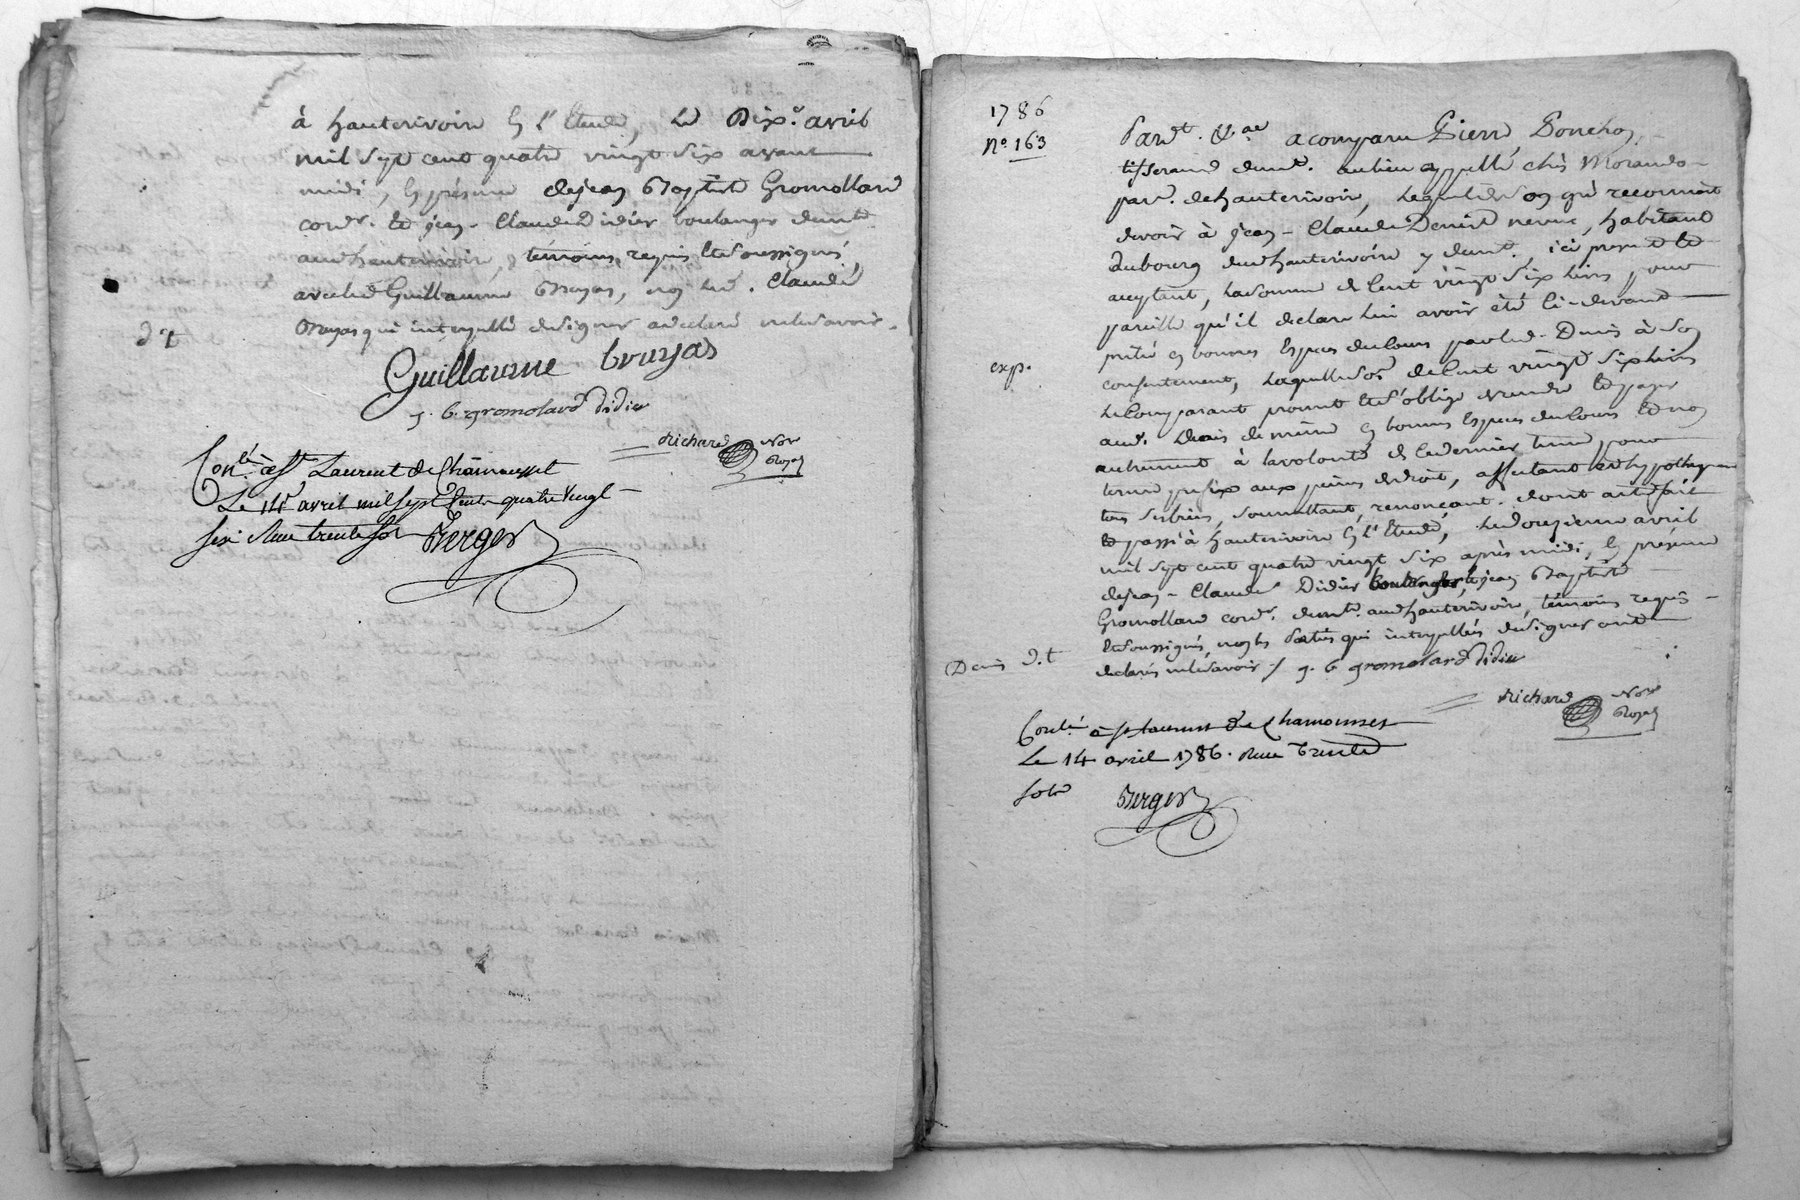 à hauterivoire En l'Etude, Le Dix.e avril
mil sept cent quatre vingt six avant
midi, En présence de jean Baptiste Gromollard
cordr. Et jean-Claude Didier boulanger demt.
aud hauterivoire, témoins requis Et soussignés,
avec led Guillaume Bruyas, non led. Claude
Bruyas qui interpellé de signer a declaré ne le savoir.
d t
Guillaume bruyas
j. b. gromolard didier
Richard Nore
Royal
Conlé. à St Laurent de Chamousset
Le 14e avril mil sept Cent quatre Vingt
six Reçu trente sols Berger
1786
No. 163
Pardt. &ae a comparu Pierre Ponchon
tisserand demt. au lieu appellé chés Morandon
parr. de hauterivoire, Lequel de son gré reconnoit
devoir à jean-Claude Denis neveu, habitant
du bourg dud hauterivoire y demt, ici present Et
acceptant, La somme de Cent vingt six Livres pour
pareille qu'il declare Lui avoir été Ci-devant
prêté En bonnes Especes du Cours par led. Denis à son
exp.
consentement, Laquelle som de Cent vingt six Livres
Le Comparant promet Et s'oblige de rendre Et payer
aud. Denis de même En bonnes Especes du Cours Et non
autrement à la volonté de Ce dernier terme pour
terme prefix aux peines de droit, affectant Et hypothequant
tous ses biens, soumettant, renonçant. dont acte fait
Et passé à hauterivoire En l'Etude, Le douzieme avril
mil sept cent quatre vingt six après midi, En présence
de jean-Claude Didier boulanger, Et jean Baptiste
Gromollard cordr. demt. aud hauterivoire, témoins requis
Et soussignés, non les Parties qui interpellées de signer ont
Denis d.t
declarés ne le savoir / j. b. gromolard didier
Richard Nore
Royal
Conlé. à St Laurent de Chamousset
Le 14 avril 1786. Reçu trente
sols Berger